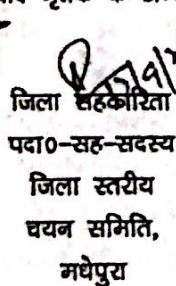 जिला सहकारिता
पदा0-सह-सदस्य
जिला स्तरीय
चयन समिति,
मधेपुरा